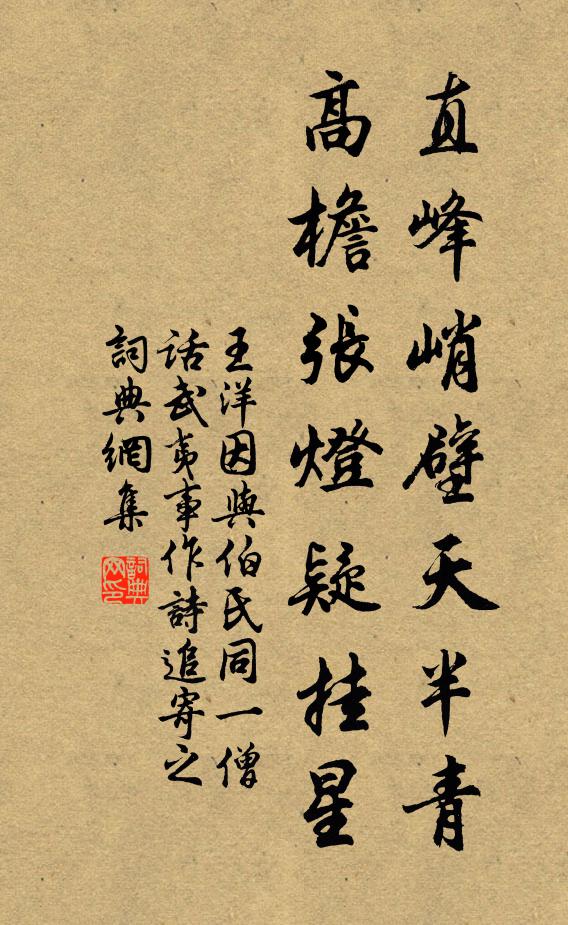 直峰峭壁天半青
高檐張燈疑挂星
王洋因與伯氏同一僧
話武夷事作詩追寄之
詞典網集
詞典網印